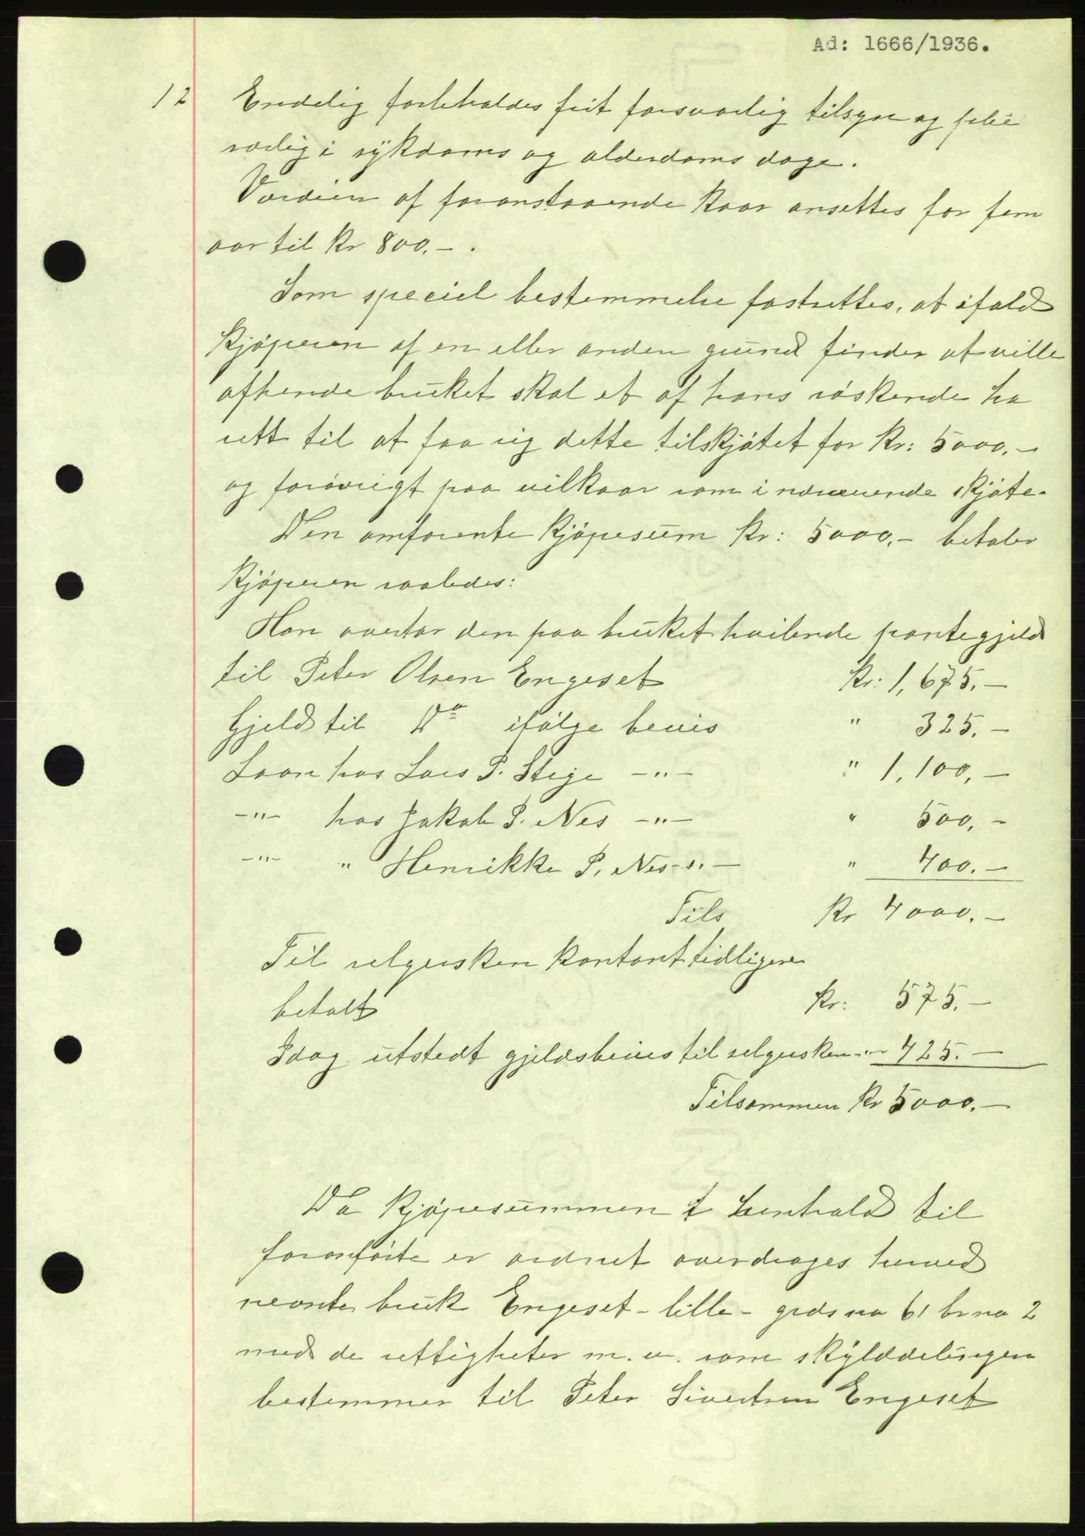 Ad: 1666/1936.
12 Endelig forbeholdes frit forsvarlig tilsyn og pleie
særlig i sykdoms og alderdoms dage.
Værdien af foranstaaende kaar ansettes for fem
aar til Kr 800.- .
Som speciel bestemmelse fastsettes, at ifald
kjøperen af en eller anden grund finder at ville
afhende bruket skal et af hans søskende ha
rett til at faa sig dette tilskjøtet for Kr: 5000.-
og forøvrigt paa vilkaar som i nærværende skjøte.
Den omforente kjøpesum Kr: 5000,- betaler
kjøperen saaledes:
Han overtar den paa bruket hvilende pantegjeld
til Peter Olsen Engeset Kr: 1,675.-
Gjeld til Do ifølge bevis " 325.-
Laan hos Lars P. Stige -"- " 1,100,-
-"- hos Jakob P. Nes -"- " 500,-
-"- " Henrikke P. Nes -"- " 400.-
Tils Kr 4000.-
Til selgersken kontant tidligere
betalt Kr: 575.-
Idag utstedt gjeldsbevis til selgersken -"- 425.-
Tilsammen Kr 5000.-
Da kjøpesummen i henhold til
foranførte er ordnet overdrages herved
nevnte bruk Engeset - lille - grds no 61 br no 2
med de rettigheter m. v. som skylddelingen
bestemmer til Peter Sivertsen Engeset